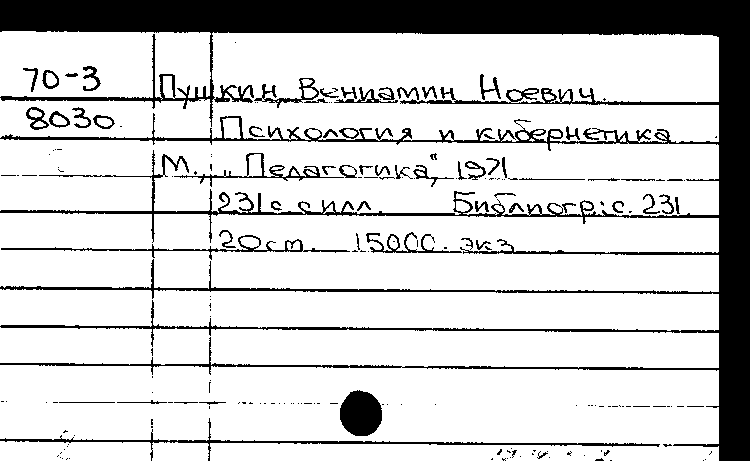 70-3 Пушкин, Вениамин Ноевич.
8030 Психология и кибернетика
М., „Педагогика", 1971
231 с. с илл. Библиогр.: с. 231.
20 см. 15000 экз.